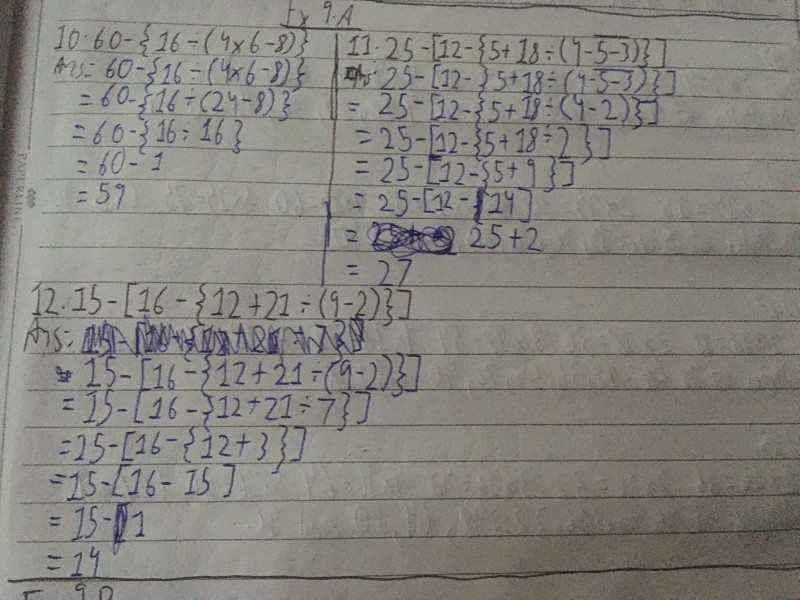 Ex 9.A
10. 60-{16÷(4×6-8)}
Ans: 60-{16÷(4×6-8)}
= 60-{16÷(24-8)}
= 60-{16÷16}
= 60-1
= 59
11. 25-[12-{5+18÷(4-5̅-̅3̅)}]
Ans: 25-[12-{5+18÷(4-5̅-̅3̅)}]
= 25-[12-{5+18÷(4-2)}]
= 25-[12-{5+18÷2}]
= 25-[12-{5+9}]
= 25-[12-14]
= 25+2
= 27
12. 15-[16-{12+21÷(9-2)}]
Ans:
= 15-[16-{12+21÷(9-2)}]
= 15-[16-{12+21÷7}]
= 15-[16-{12+3}]
= 15-[16-15]
= 15-1
= 14
PAPERLINE